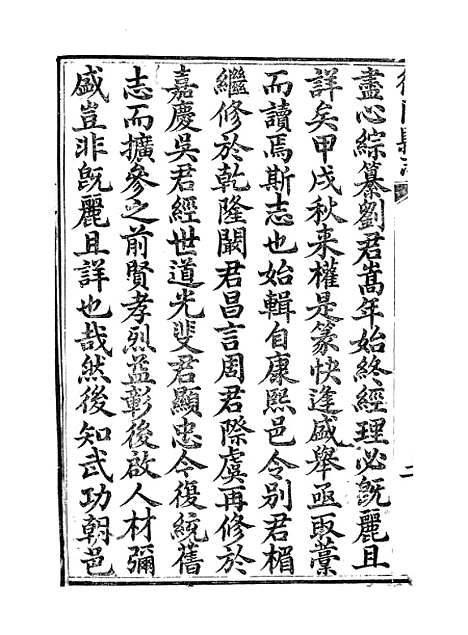 盡心綜纂劉君嵩年始終經理必旣麗且
詳矣甲戌秋来權是篆快逢盛舉亟取藁
而讀焉斯志也始輯自康熙邑令別君楣
繼修於乾隆闕君昌言周君際虞再修於
嘉慶吳君經世道光斐君顯忠今復統舊
志而擴參之前賢孝烈益彰後啟人材彌
盛豈非旣麗且詳也哉然後知武功朝邑